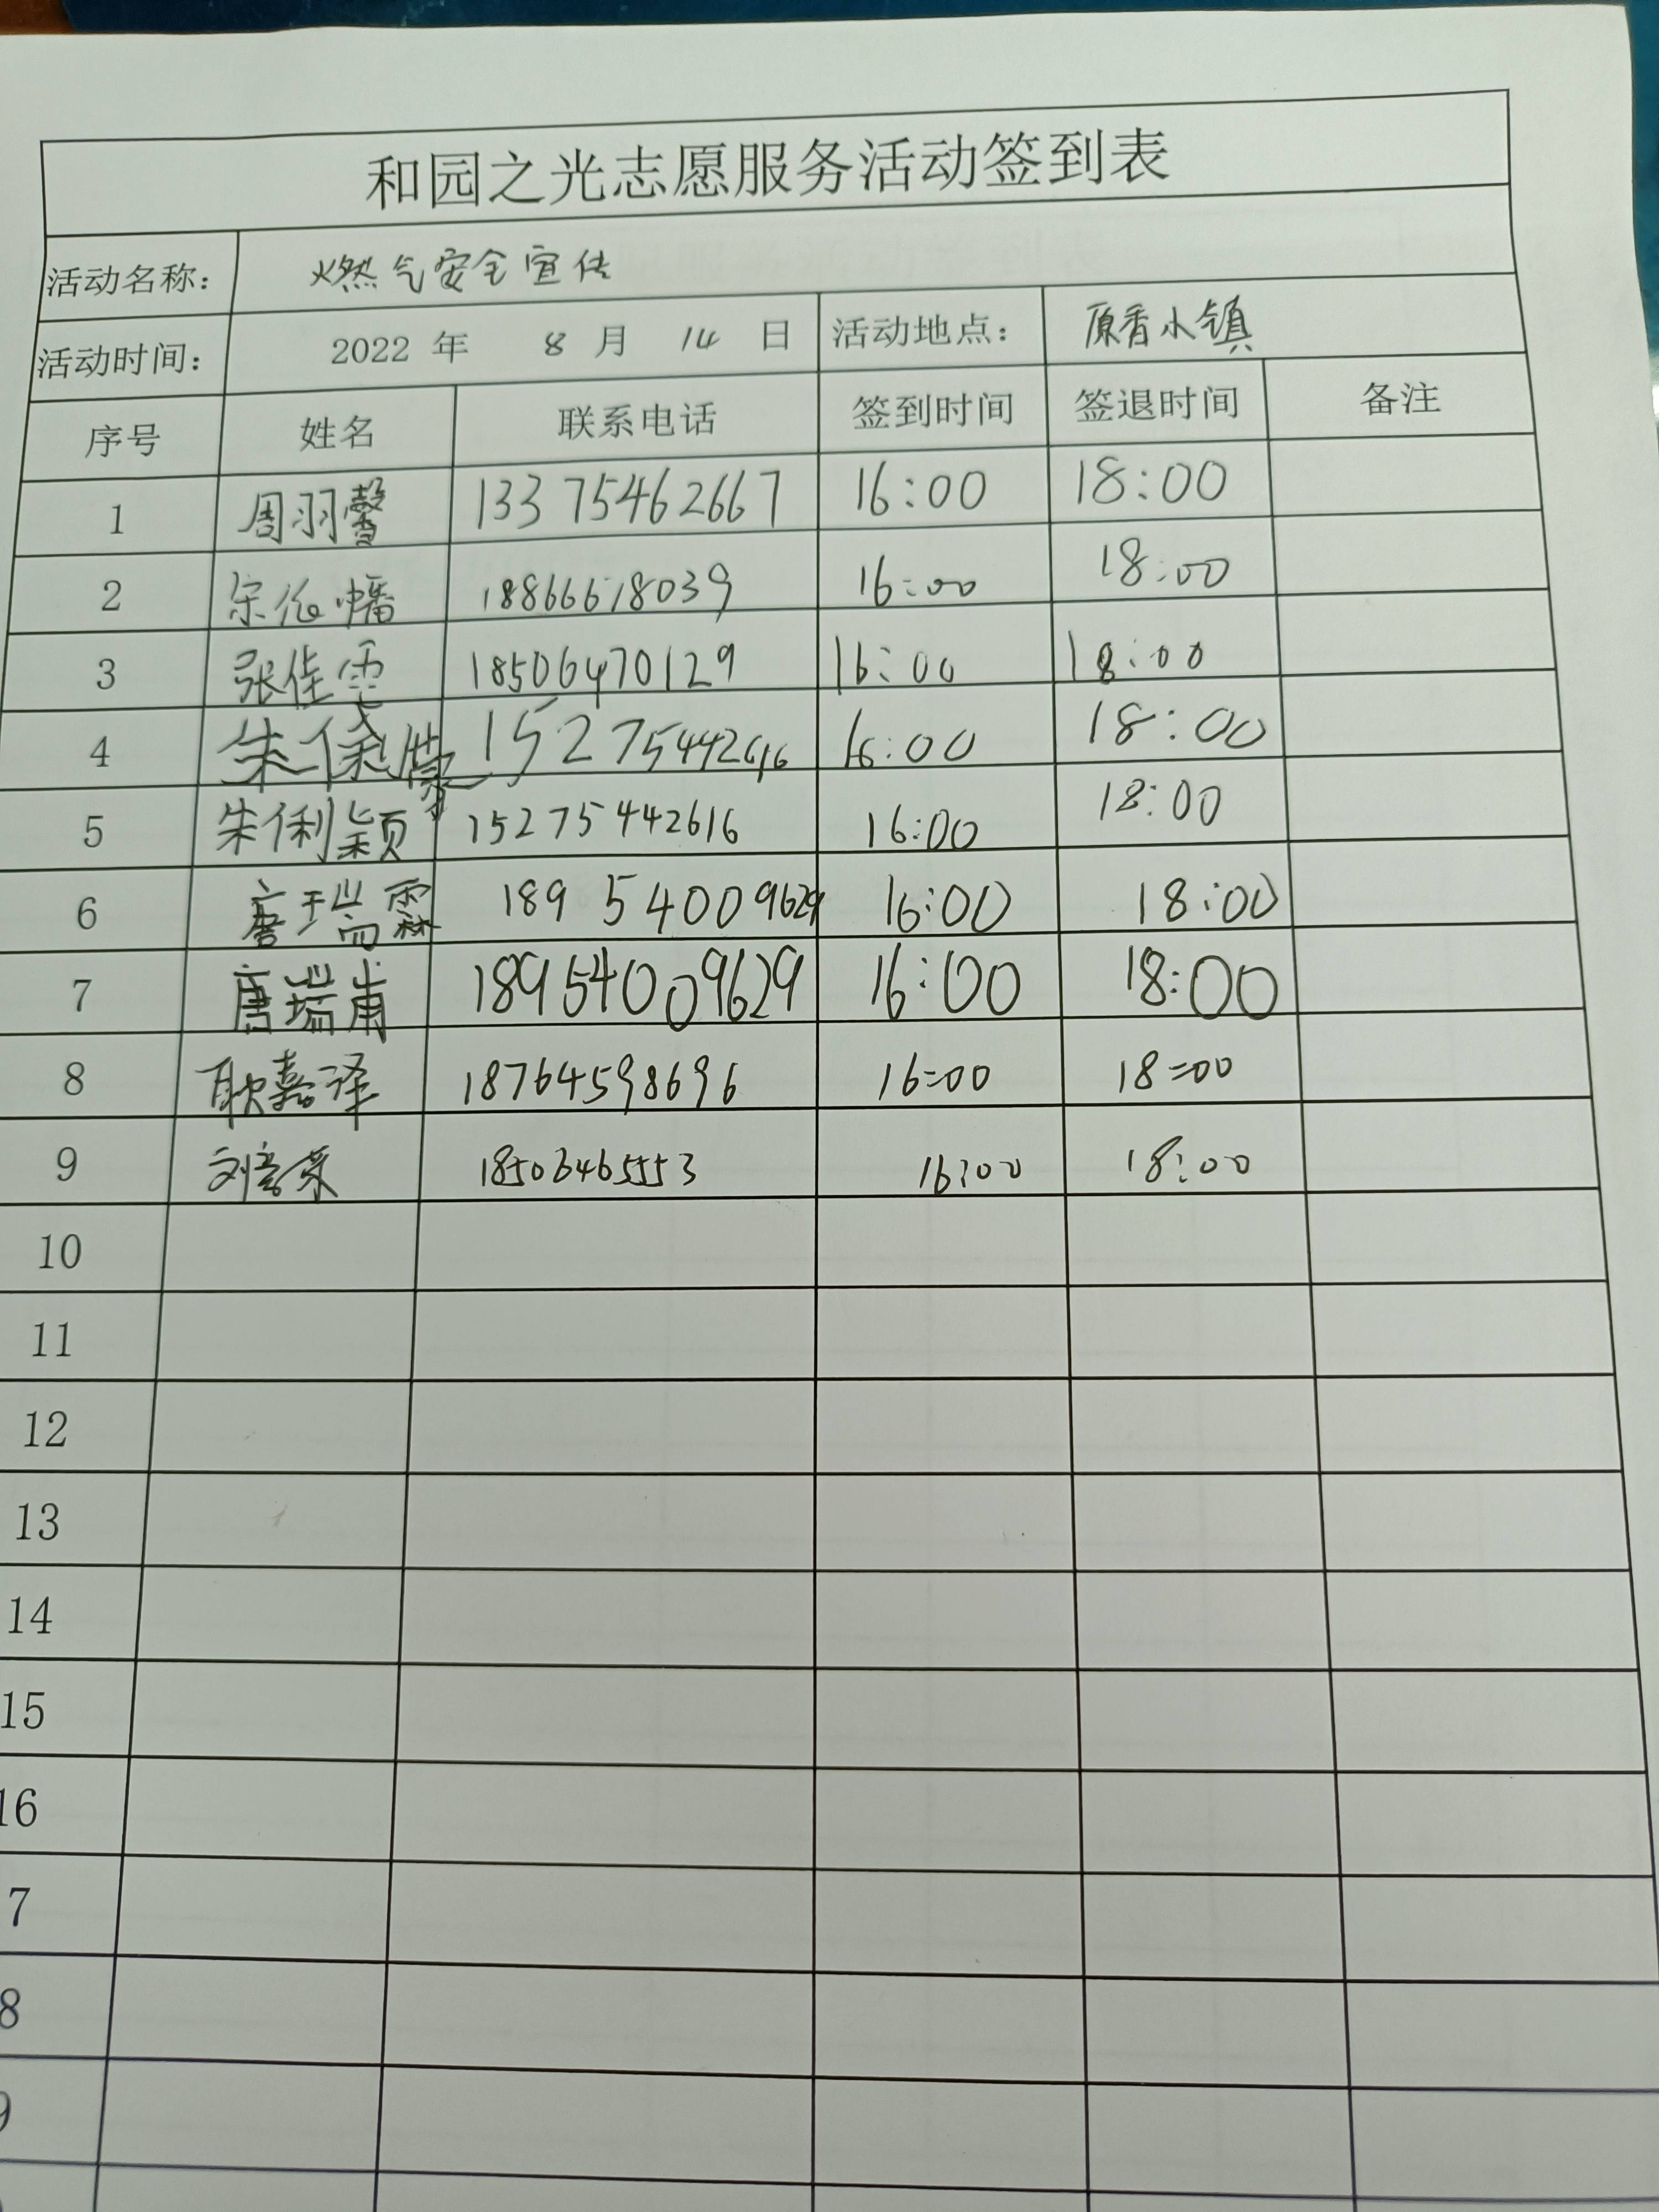 和园之光志愿服务活动签到表
活动名称： 燃气安全宣传
活动时间： 2022 年 8 月 14 日 活动地点： 原香小镇
序号 姓名 联系电话 签到时间 签退时间 备注
1 周羽馨 13375462667 16:00 18:00
2 18866618039 16:00 18:00
3 张佳雪 18506470129 16:00 18:00
4 朱 16:00 18:00
5 朱俐颖 15275442616 16:00 18:00
6 唐瑞霖 18954009629 16:00 18:00
7 唐瑞甫 18954009629 16:00 18:00
8 耿嘉泽 18764598696 16:00 18:00
9 刘 18506465553 16:00 18:00
10
11
12
13
14
15
16
7
8
9